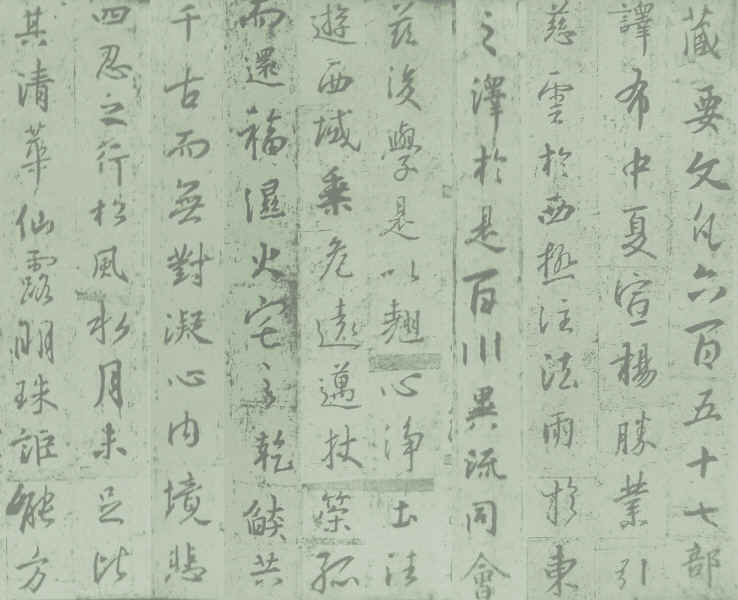 藏要文凡六百五十七部
譯布中夏宣楊勝業引
慈雲於西極注法雨於東
之澤於是百川異流同會
茲後學是以翹心淨土法
遊西域乘危遠邁杖策孤
而還福濕火宅之乾燄共
千古而無對凝心內境悲
四忍之行松風水月未足比
其清華仙露明珠詎能方